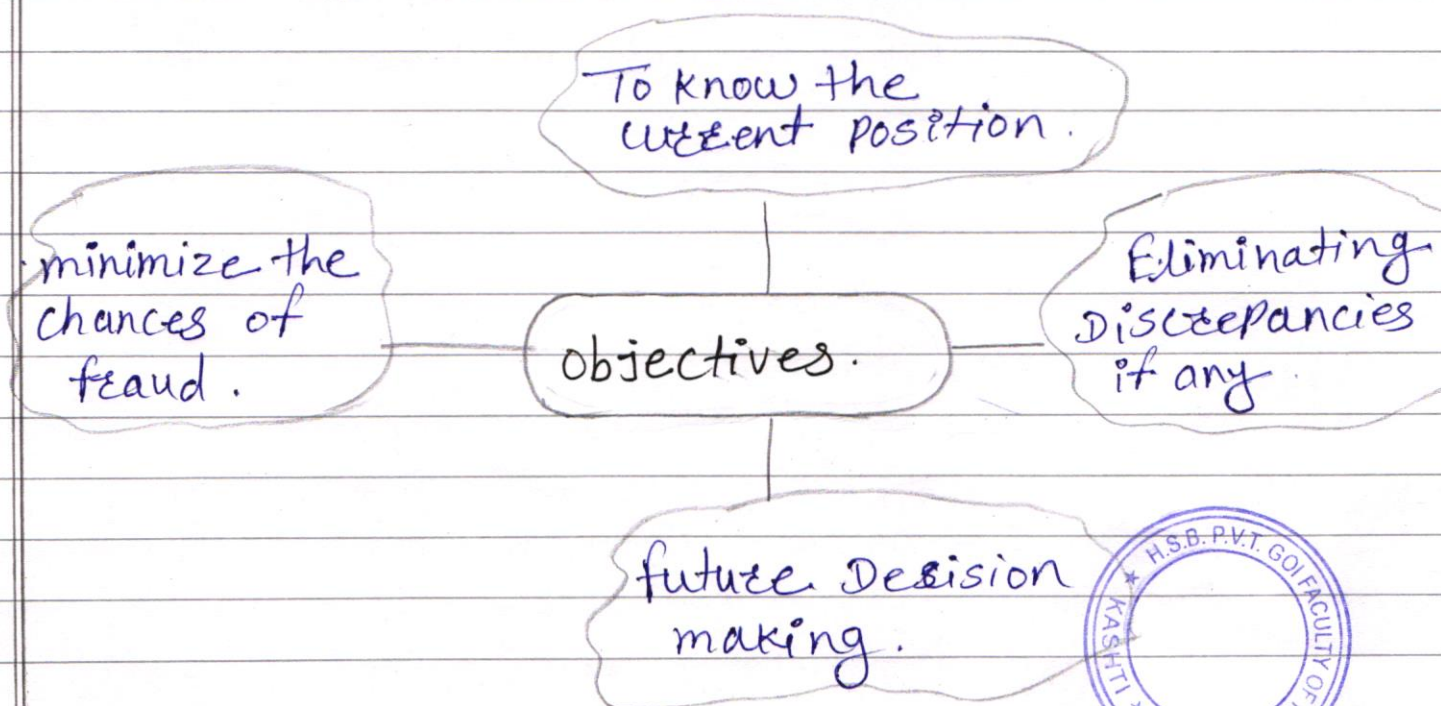 To know the
current position.
minimize the
chances of
fraud.
objectives.
Eliminating
Discrepancies
if any.
future Decision
making.
★ H.S.B. P.V.T. GOI FACULTY OF
KASHTI